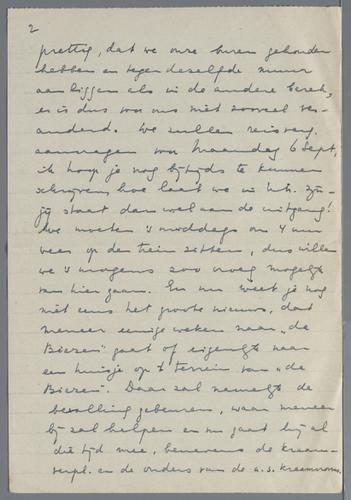 2
prettig, dat we onze buren gehouden
hebben en tegen dezelfde muur
aan liggen als in de andere barak,
er is dus voor ons niet zooveel ver-
anderd. We zullen reisverg.
aanvragen voor Maandag 6 Sept,
ik hoop je nog bijtijds te kunnen
schrijven, hoe laat we in zijn-
jij staat dan wel aan de uitgang!
We moeten 's middags om 4 uur
weer op den trein zitten, dus willen
we 's morgens zoo vroeg mogelijk
van hier gaan. En nu weet je nog
niet eens het groote nieuws, dat
meneer eenige weken naar „de
Biezen" gaat of eigenlijk naar
een huisje op 't terrein van „de
Biezen". Daar zal namelijk de
bevalling gebeuren, waar meneer
bij zal helpen en nu gaat hij al
die tijd mee, benevens de kraam-
verpl. en de ouders van de a.s. kraamvrouw.